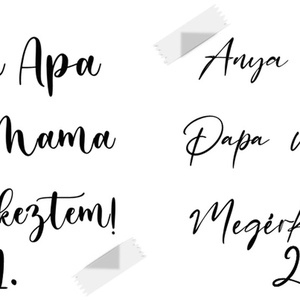 Apa
Mama
keztem!
1.
Anya
Papa
Megérk
2